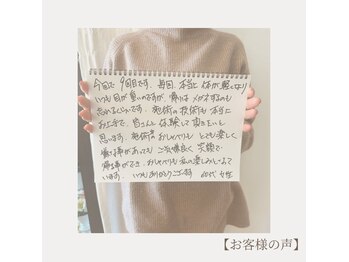 今回で9回目です。毎回、本当に体が軽くなり
いつも目が重いのですが、帰りはメガネするのも
忘れるくらいです。施術の技術も本当に
お上手で、皆さんに体験して頂きたいと
思います。施術中のおしゃべりも とても楽しく
嫌な事があっても ご気嫌良く 笑顔で
帰る事ができ、おしゃべりも私の楽しみの一つで
います。いつもありがとうございます 60代 女性
【お客様の声】